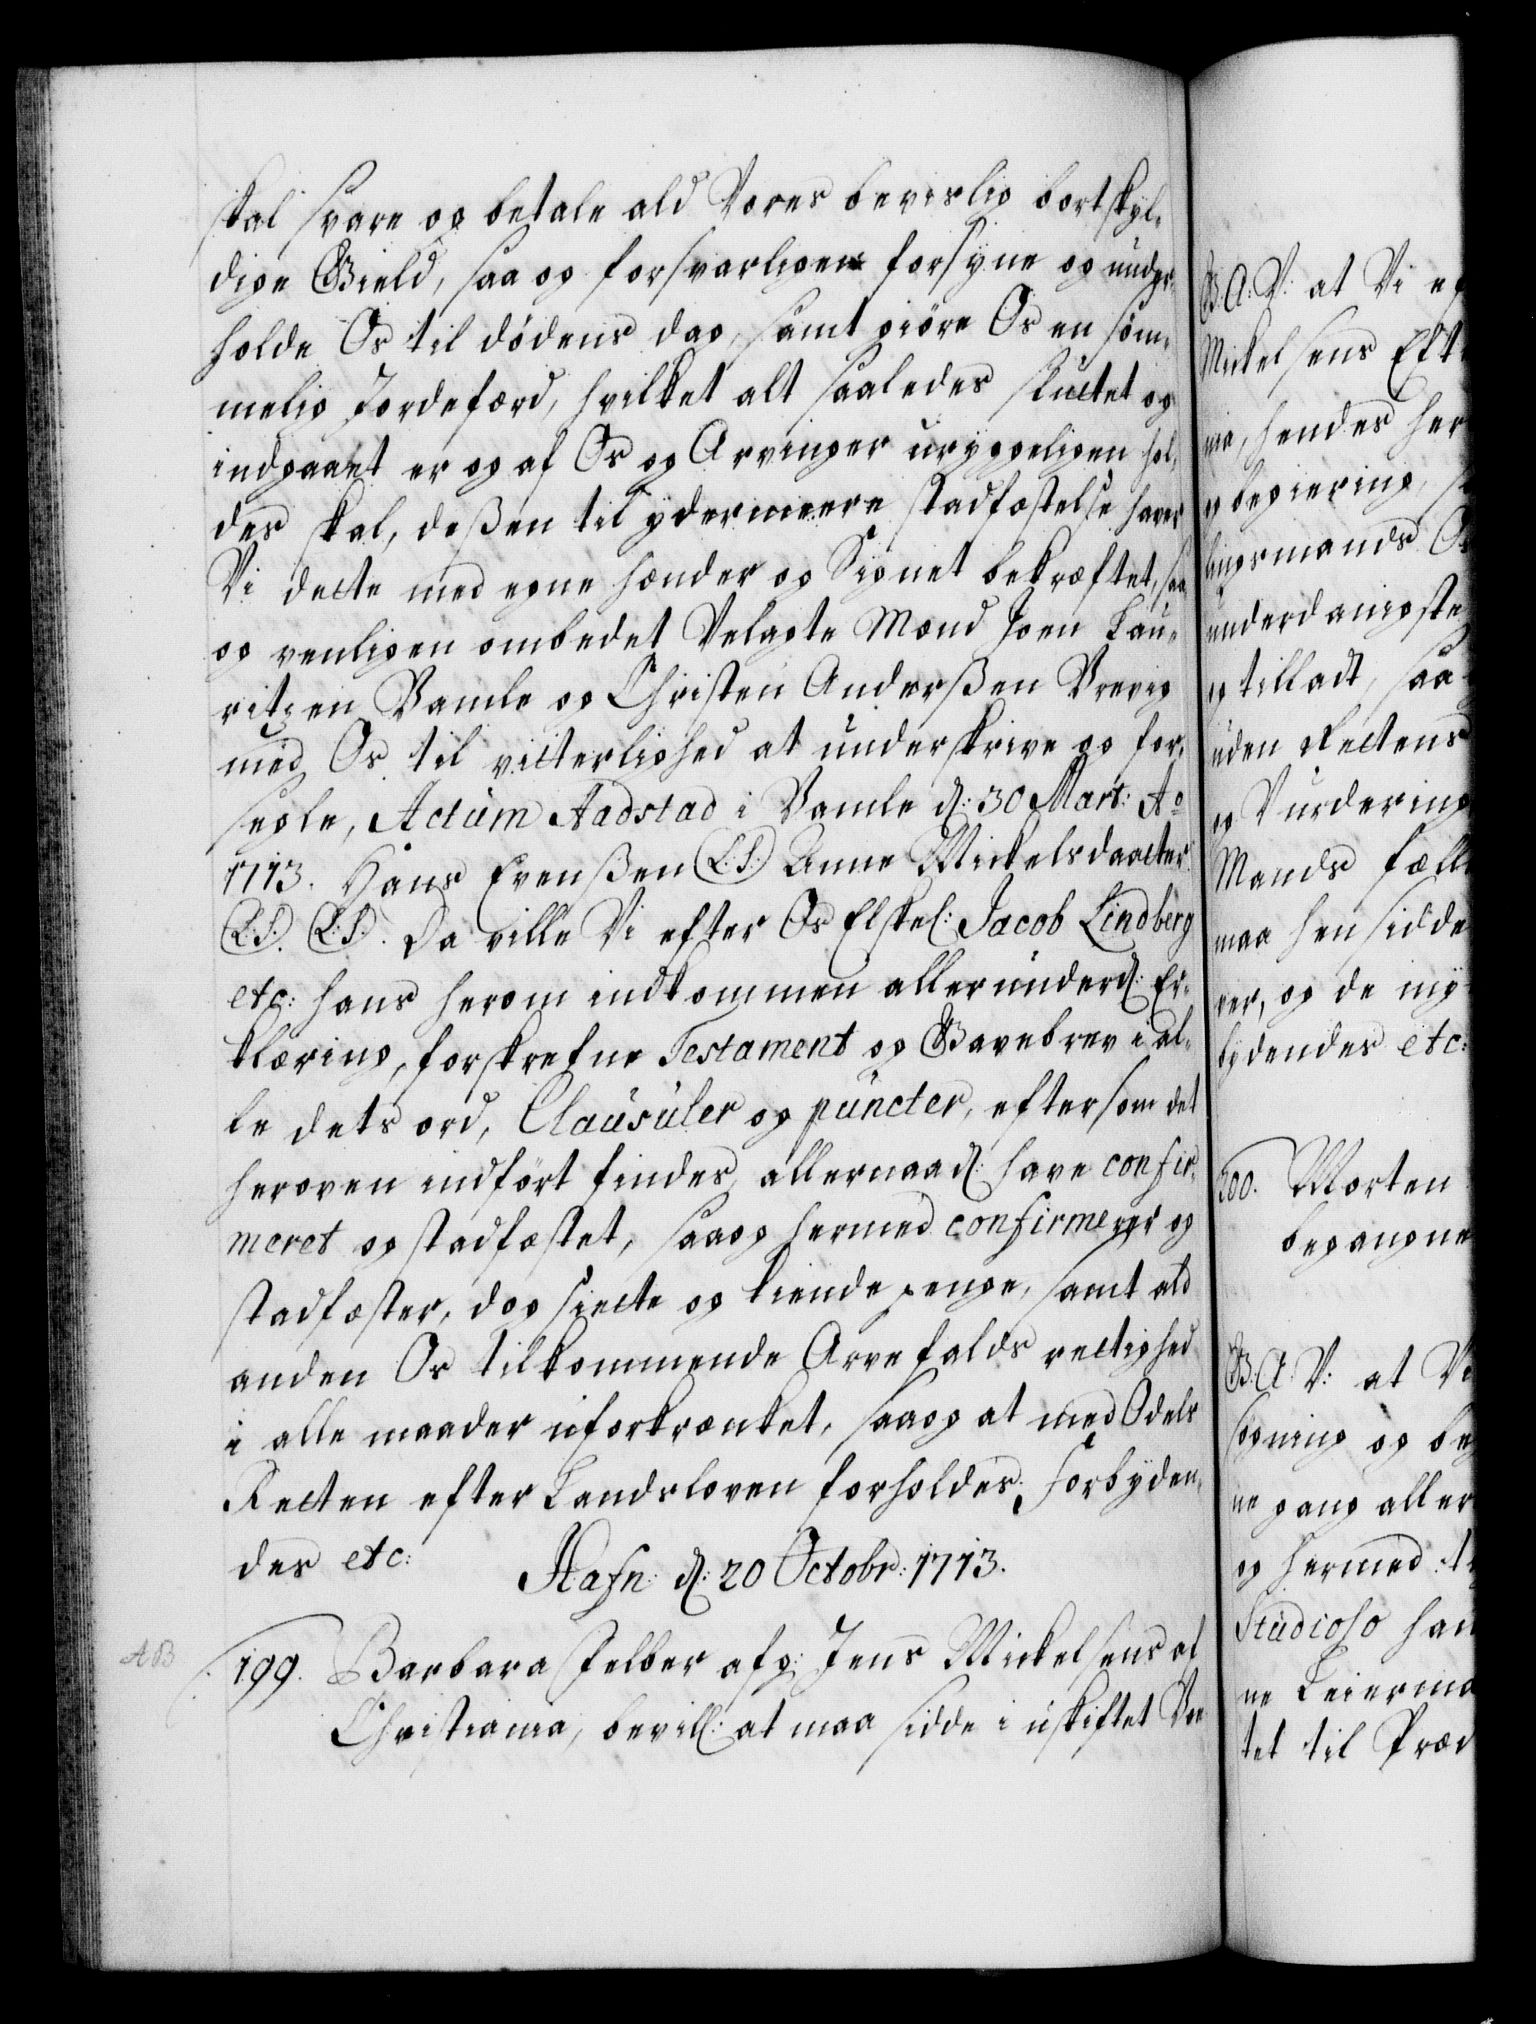 skal svare og betale ald Vores bevislig bortskyl-
dige Gield, saa og forsvarligen forsyne og under-
holde Os til dödens dag, samt giöre Os en söm-
melig Jordefærd, hvilket alt saaledes sluttet og
indgaaet er og af Os og Arvinger uryggeligen hol-
des skal, deßen til ydermeere stadfæstelse haver
Vi dette med egne hænder og Signet bekræftet, saa
og venligen ombedet Velagte Mænd Joen Lau-
ritzen Vamle og Christen Anderßen Vrevig
med Os til vitterlighed at underskrive og for-
segle, Actum Aadstad i Vamle d: 30 Mart: Ao
1713. Hans Evenßen (L.S.) Anne Mickelsdaatter
(L.S.) (L.S.). Da ville Vi efter Os Elskel: Jacob Lindberg
etc: hans herom indkommen allerunderd: Er-
klæring, forskrefne Testament og Gavebrev i al-
le dets ord, Clausuler og puncter, eftersom det
heroven indfört findes, allernaad: have confir-
meret og stadfæstet, saa og hermed confirmerer og
stadfæster, dog siette og tiende penge, samt ald
anden Os tilkommende Arvefalds rettighed
i alle maader uforkrænket, saa og at med Odels
Retten efter Landsloven forholdes. Forbyden-
des etc:
Hafn: d: 20 Octobr: 1713.
AB
199. Barbara Felber afg: Jens Mickelsens af
Christiania, bevill: at maa sidde i uskiftet Boe
G. A. V: at Vi ef
Mickelsens Eft
nia, hendes her
og begiering, s
lingsmands O
underdanigste
og tilladt, saa
uden Rettens
og Vurdering
Mands fæll
maa hensidde
ver, og de my
bydendes etc:
200. Morten
begangne
G. A. V: at Vi
sögning og beg
ne gang aller
og hermed t
Studioso han
ne Leierma
tet til Præd